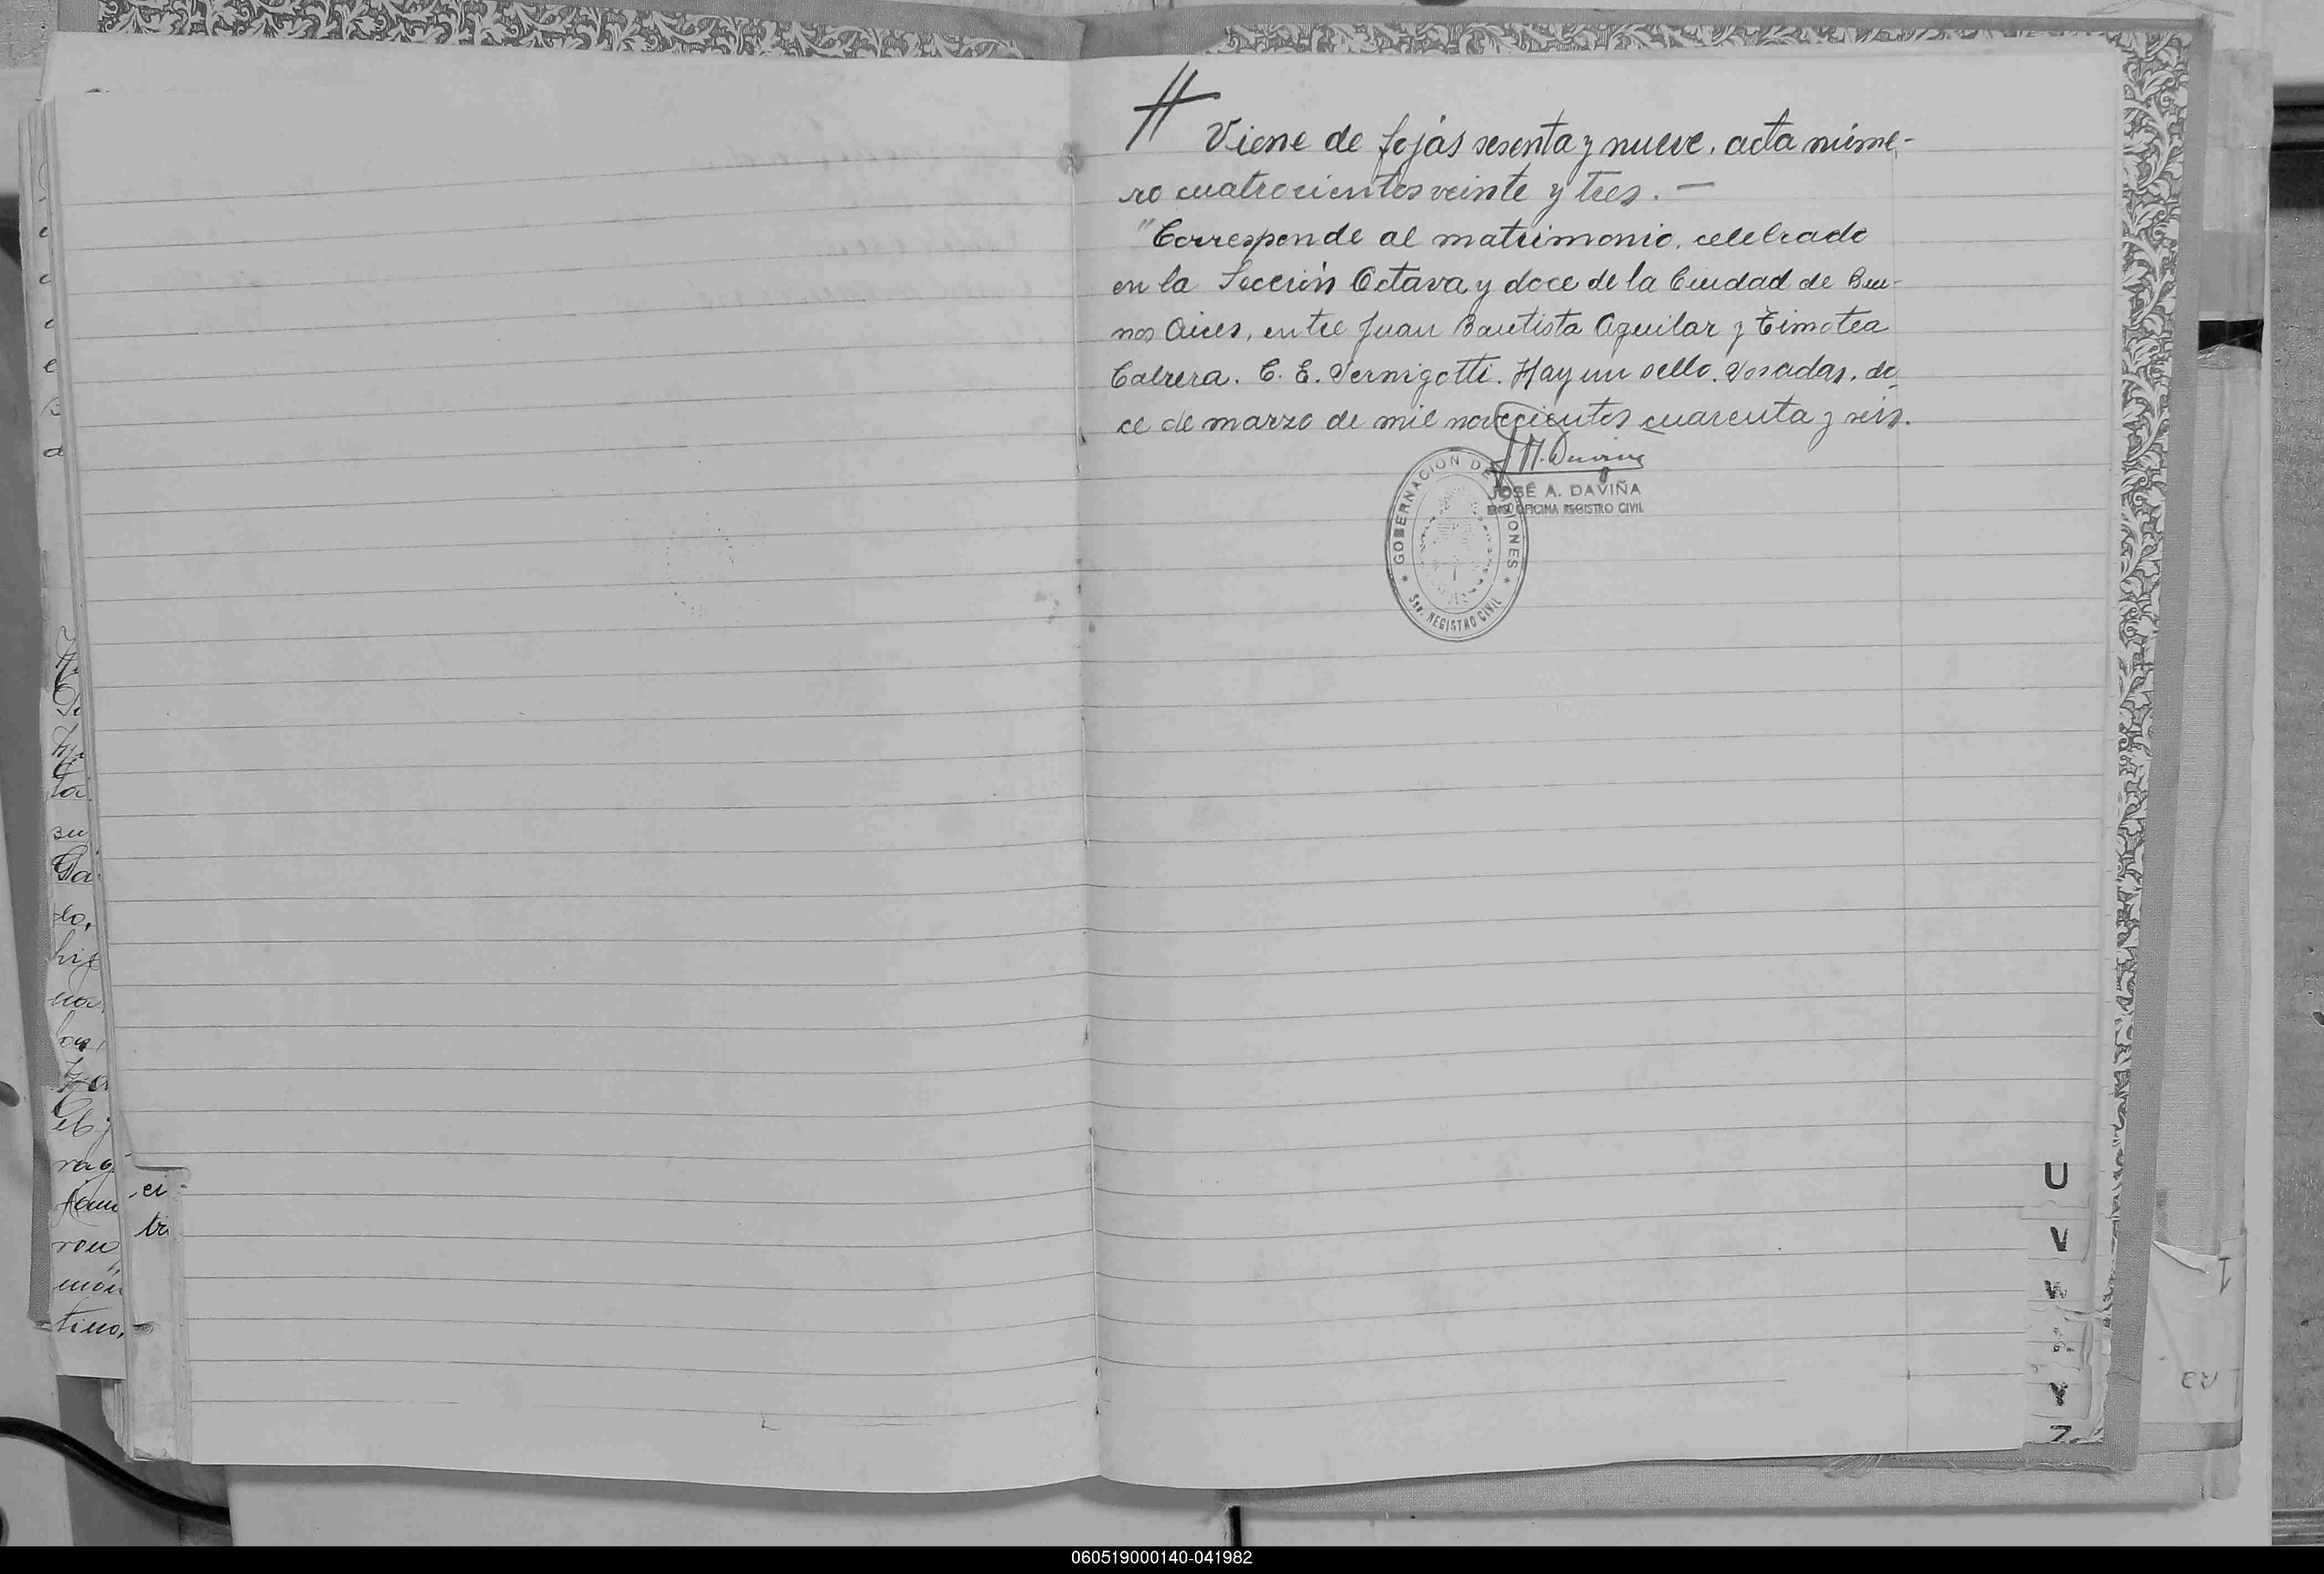 Viene de fojas sesenta y nueve, acta núme-
ro cuatrocientos veinte y tres. —
"Corresponde al matrimonio, celebrado
en la Sección Octava y doce de la Ciudad de Bue-
nos Aires, entre Juan Bautista Aguilar y Timotea
Cabrera. C. E. Pernigotti. Hay un sello. Posadas, do-
ce de marzo de mil novecientos cuarenta y seis.
JOSÉ A. DAVIÑA
OFICINA REGISTRO CIVIL
GOBERNACION DE MISIONES
REGISTRO CIVIL
su
hij
tino,
ci-
tr
U
V
W
Y
Z
060519000140-041982